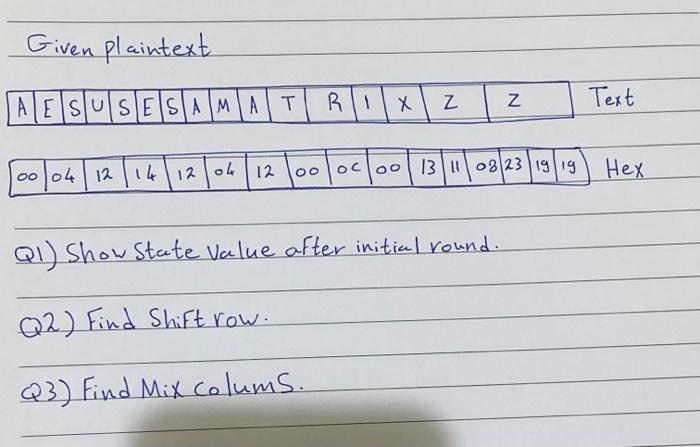 Given plaintext
A E S U S E S A M A T R I X Z Z Text
00 04 12 14 12 04 12 00 0C 00 13 11 08 23 19 19 Hex
Q1) Show State Value after initial round.
Q2) Find Shift row.
Q3) Find Mix colums.